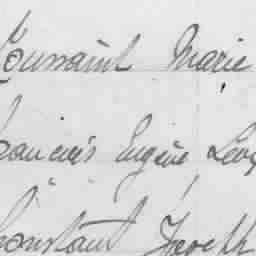 Toussaint Marie
Francois Eugène Léon
Constant Joseph